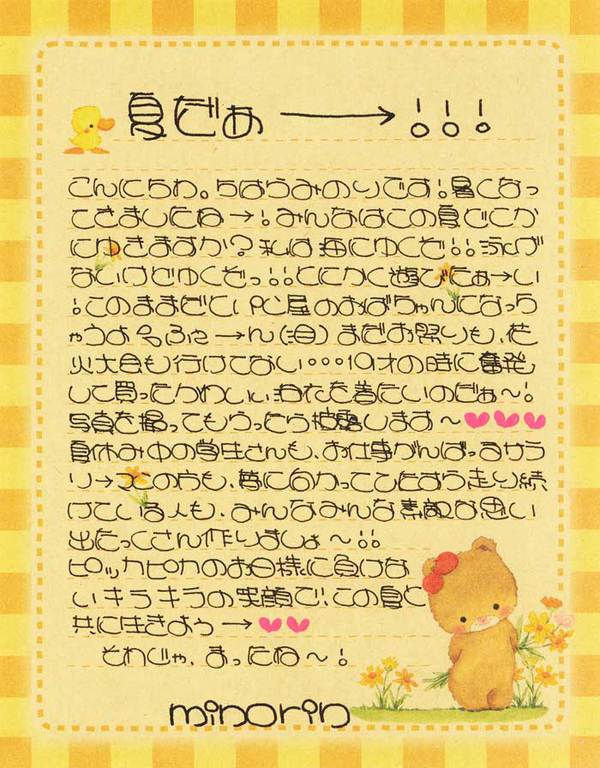 夏だぁ──→!!!
こんにちわ。ちはらみのりです!暑くなっ
てきましたね→!みんなはこの夏どこか
にゆきますか?私は海にゆくぞ!!泳げ
ないけどゆくぞっ!!とにかく遊びたぁ→い
!このままだと、PC屋のおばちゃんになっち
ゃうよぅふぇ→ん(泪)まだお祭りも、花
火大会も行けてない…19才の時に奮発
して買ったかわいぃゆかたを着たいのだぁ~!
写真を撮ってもらったら披露します~♥♥♥
夏休み中の学生さんも、お仕事がんばってるサラ
リ→マンの方も、夢に向かってひたすら走り続
けている人も、みんなみんな素敵な思い
出たっくさん作りましょ~!!
ピッカピカのお日様に負けな
いキラキラの笑顔で、この夏と
共に生きよう→♥♥
それじゃ、まったね~!
minorin